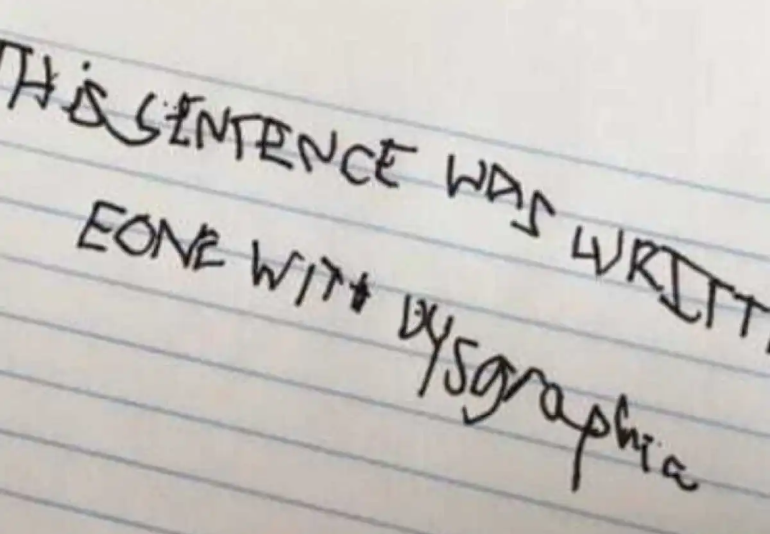 THiS SENTENCE WAS WRITT
EONE WITH DYSgraphia